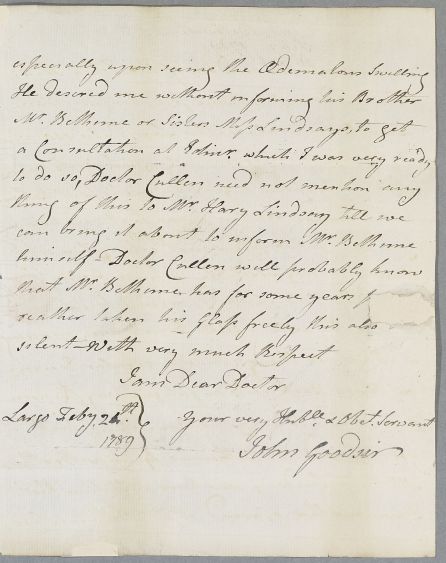 especially upon seeing the Œdematous Swelling
He desired me without informing his Brother
Mr. Bethune or Sisters Miss Lindsays, to get
a Consultation at Edinr. which I was very ready
to do so, Doctor Cullen need not mention any
thing of this to Mr. Hary Lindsay till we
can bring it about to inform Mr. Bethune
himself Doctor Cullen will probably know
that Mr. Bethune has for some years
reather taken his Glass freely this also
silent – With very much Respect
I am Dear Doctor
Largo Feby. 24th. your very Huble. & Obet. Servant
1789 John Goodsir